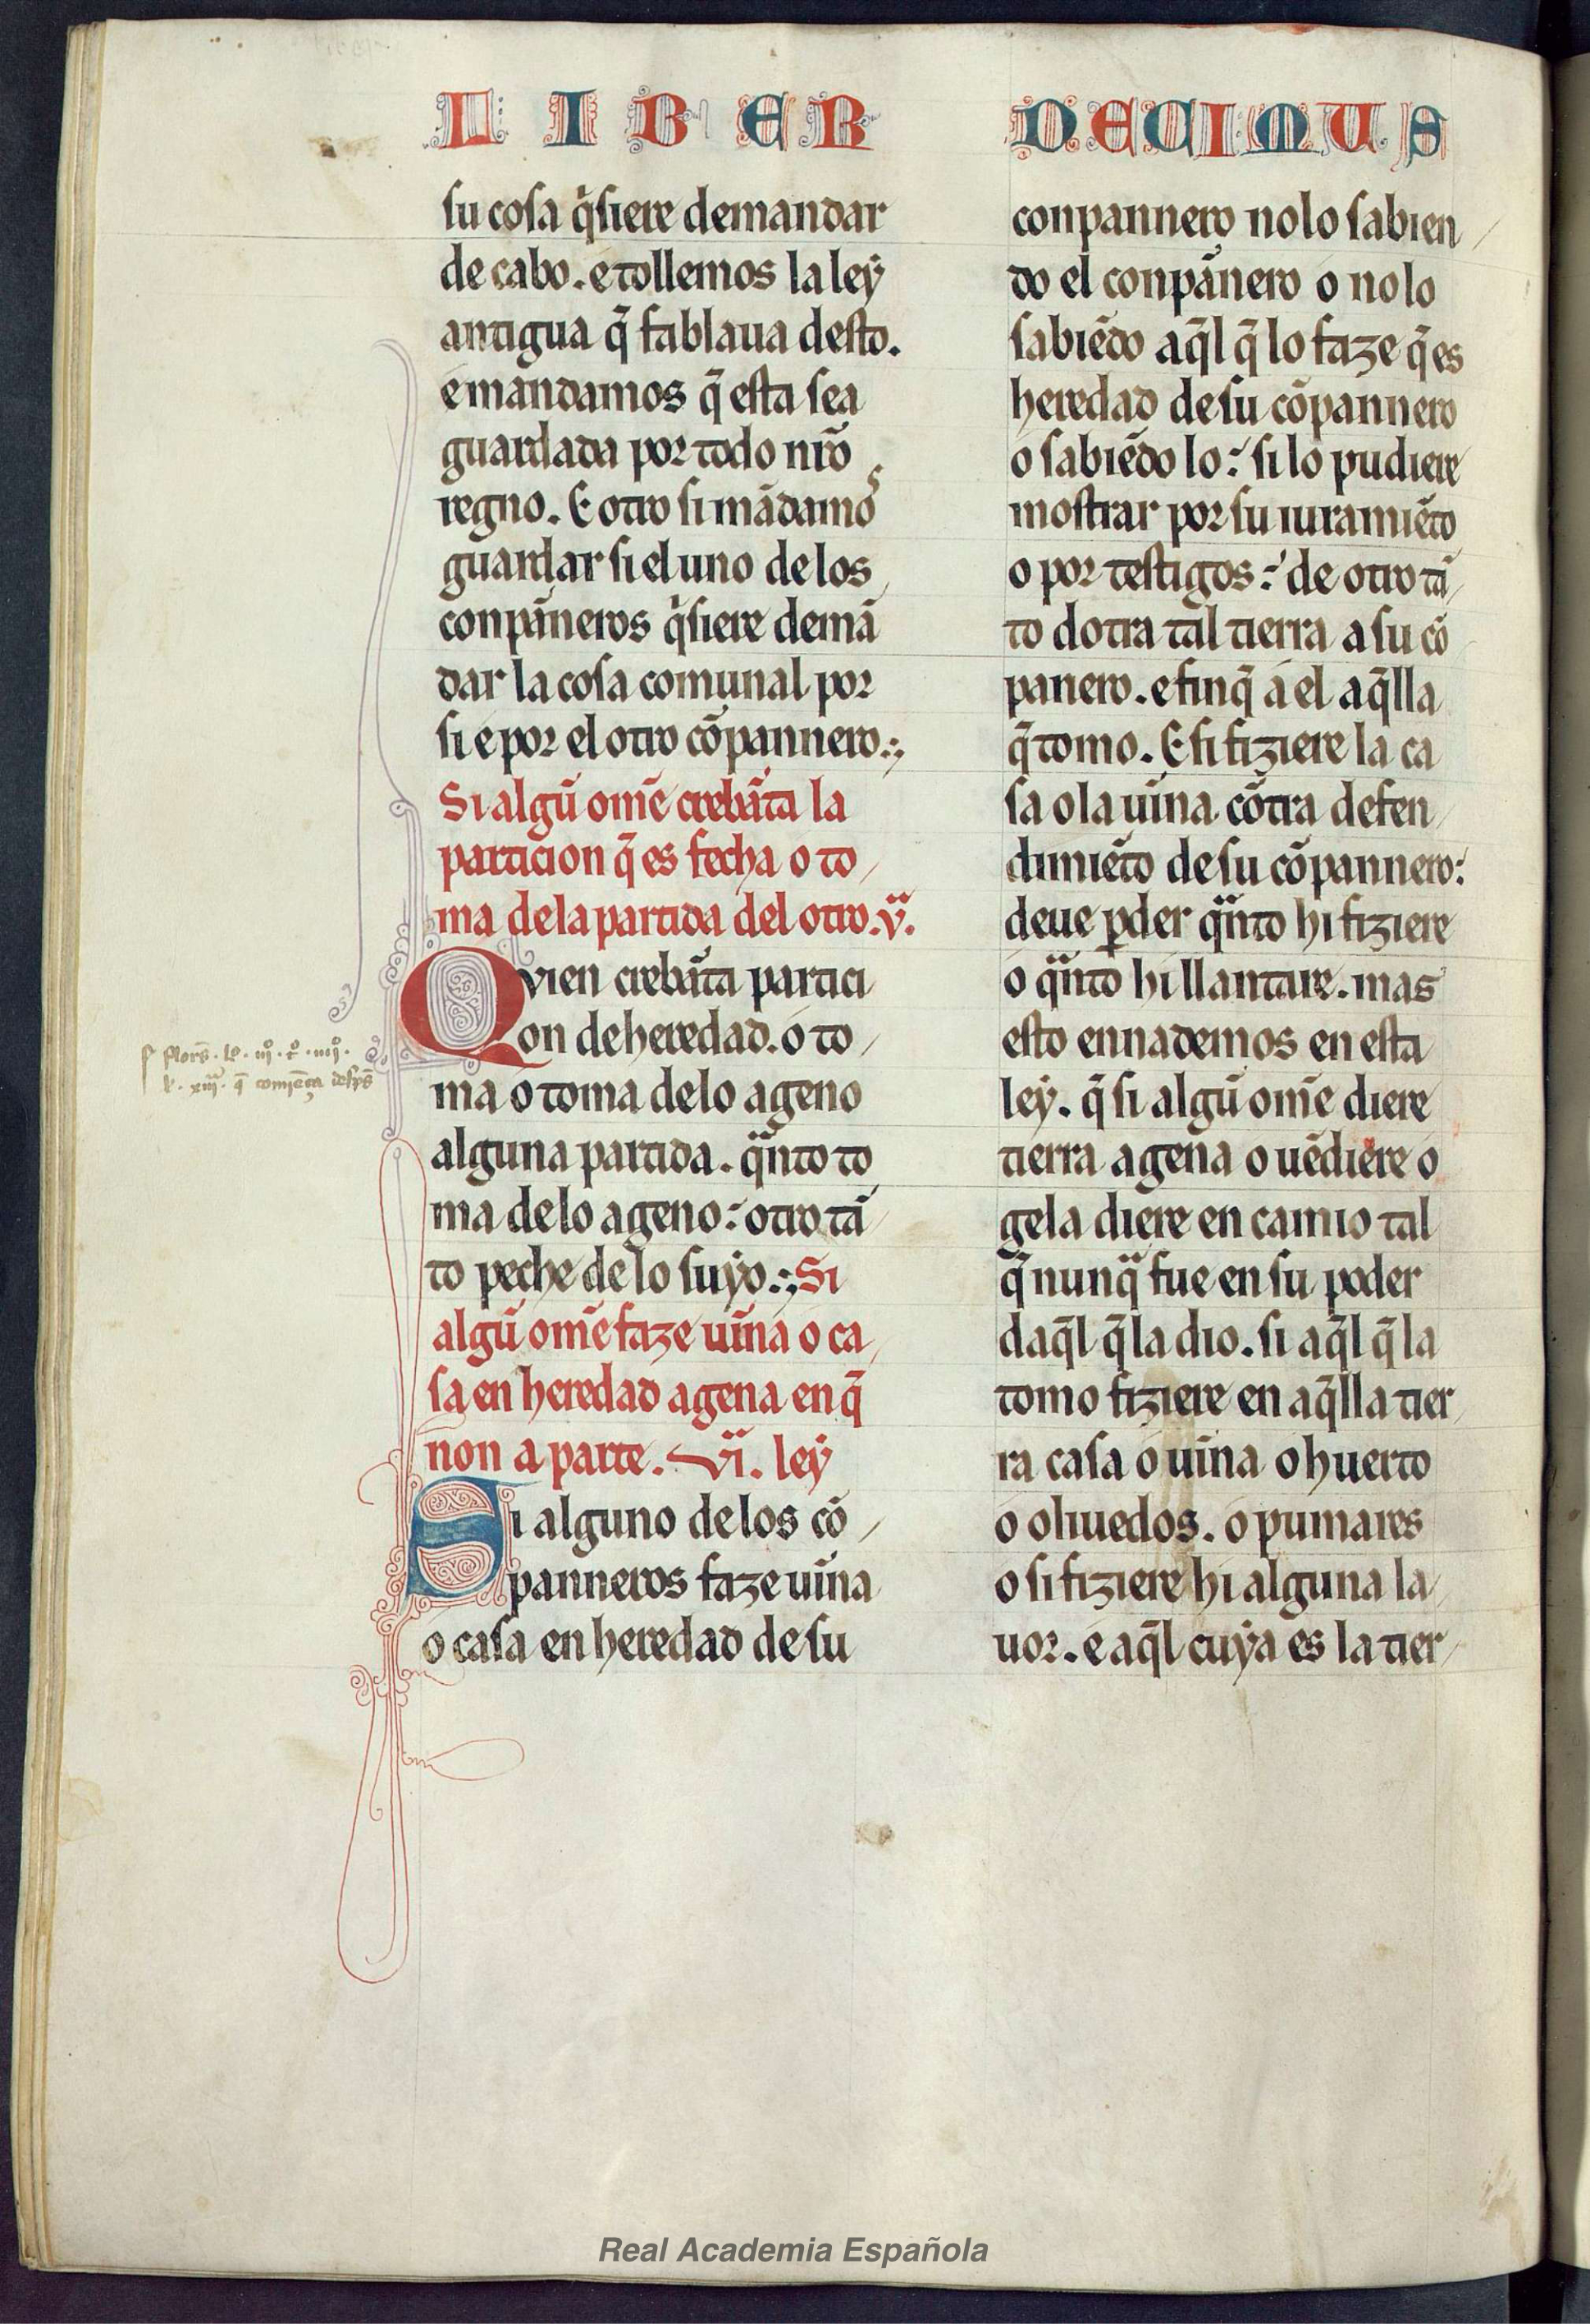 LIBER DECIMUS
su cosa q̇siere demandar
de cabo. e tollemos la leẏ
antigua q̄ fablaua desto.
e mandamos q̄ esta sea
guardada por todo nr̄o
regno. E otro si mādamos
guardar si el uno de los
conpāneros q̇siere demā
dar la cosa comunal por
si e por el otro cōpannero.
Si algū om̄e crebāta la
particion q̄ es fecha o to
ma dela partida del otro. vª.
Qvien crebāta partici
on de heredad. o to
ma o toma delo ageno
alguna partida. qªnto to
ma delo ageno: otro tā
to peche delo suẏo. Si
algū om̄e faze uīna o ca
sa en heredad agena en q̄
non a parte. viª. leẏ
Si alguno delos cō
panneros faze uīna
o casa en heredad de su
conpannero no lo sabien
do el conpānero o no lo
sabiēdo aq̄l q̄ lo faze q̄ es
heredad de su cōpannero
o sabiēdo lo: si lo pudiere
mostrar por su iuramiēto
o por testigos: de otro tā
to dotra tal tierra a su cō
panero. e finq̄ a el aq̄lla
q̄ tomo. E si fiziere la ca
sa o la uīna cōtra defen
dimiēto de su cōpannero:
deue ꝑder qªnto hi fiziere
o qªnto hi llantare. mas
esto ennademos en esta
leẏ. q̄ si algū om̄e diere
tierra agena o uēdiere o
gela diere en camio tal
q̄ nunqª fue en su poder
daq̄l q̄ la dio. si aq̄l q̄ la
tomo fiziere en aq̄lla tier
ra casa o uīna o huerto
o oliuedos. o pumares
o si fiziere hi alguna la
uor. e aq̄l cuẏa es la tier
Real Academia Española